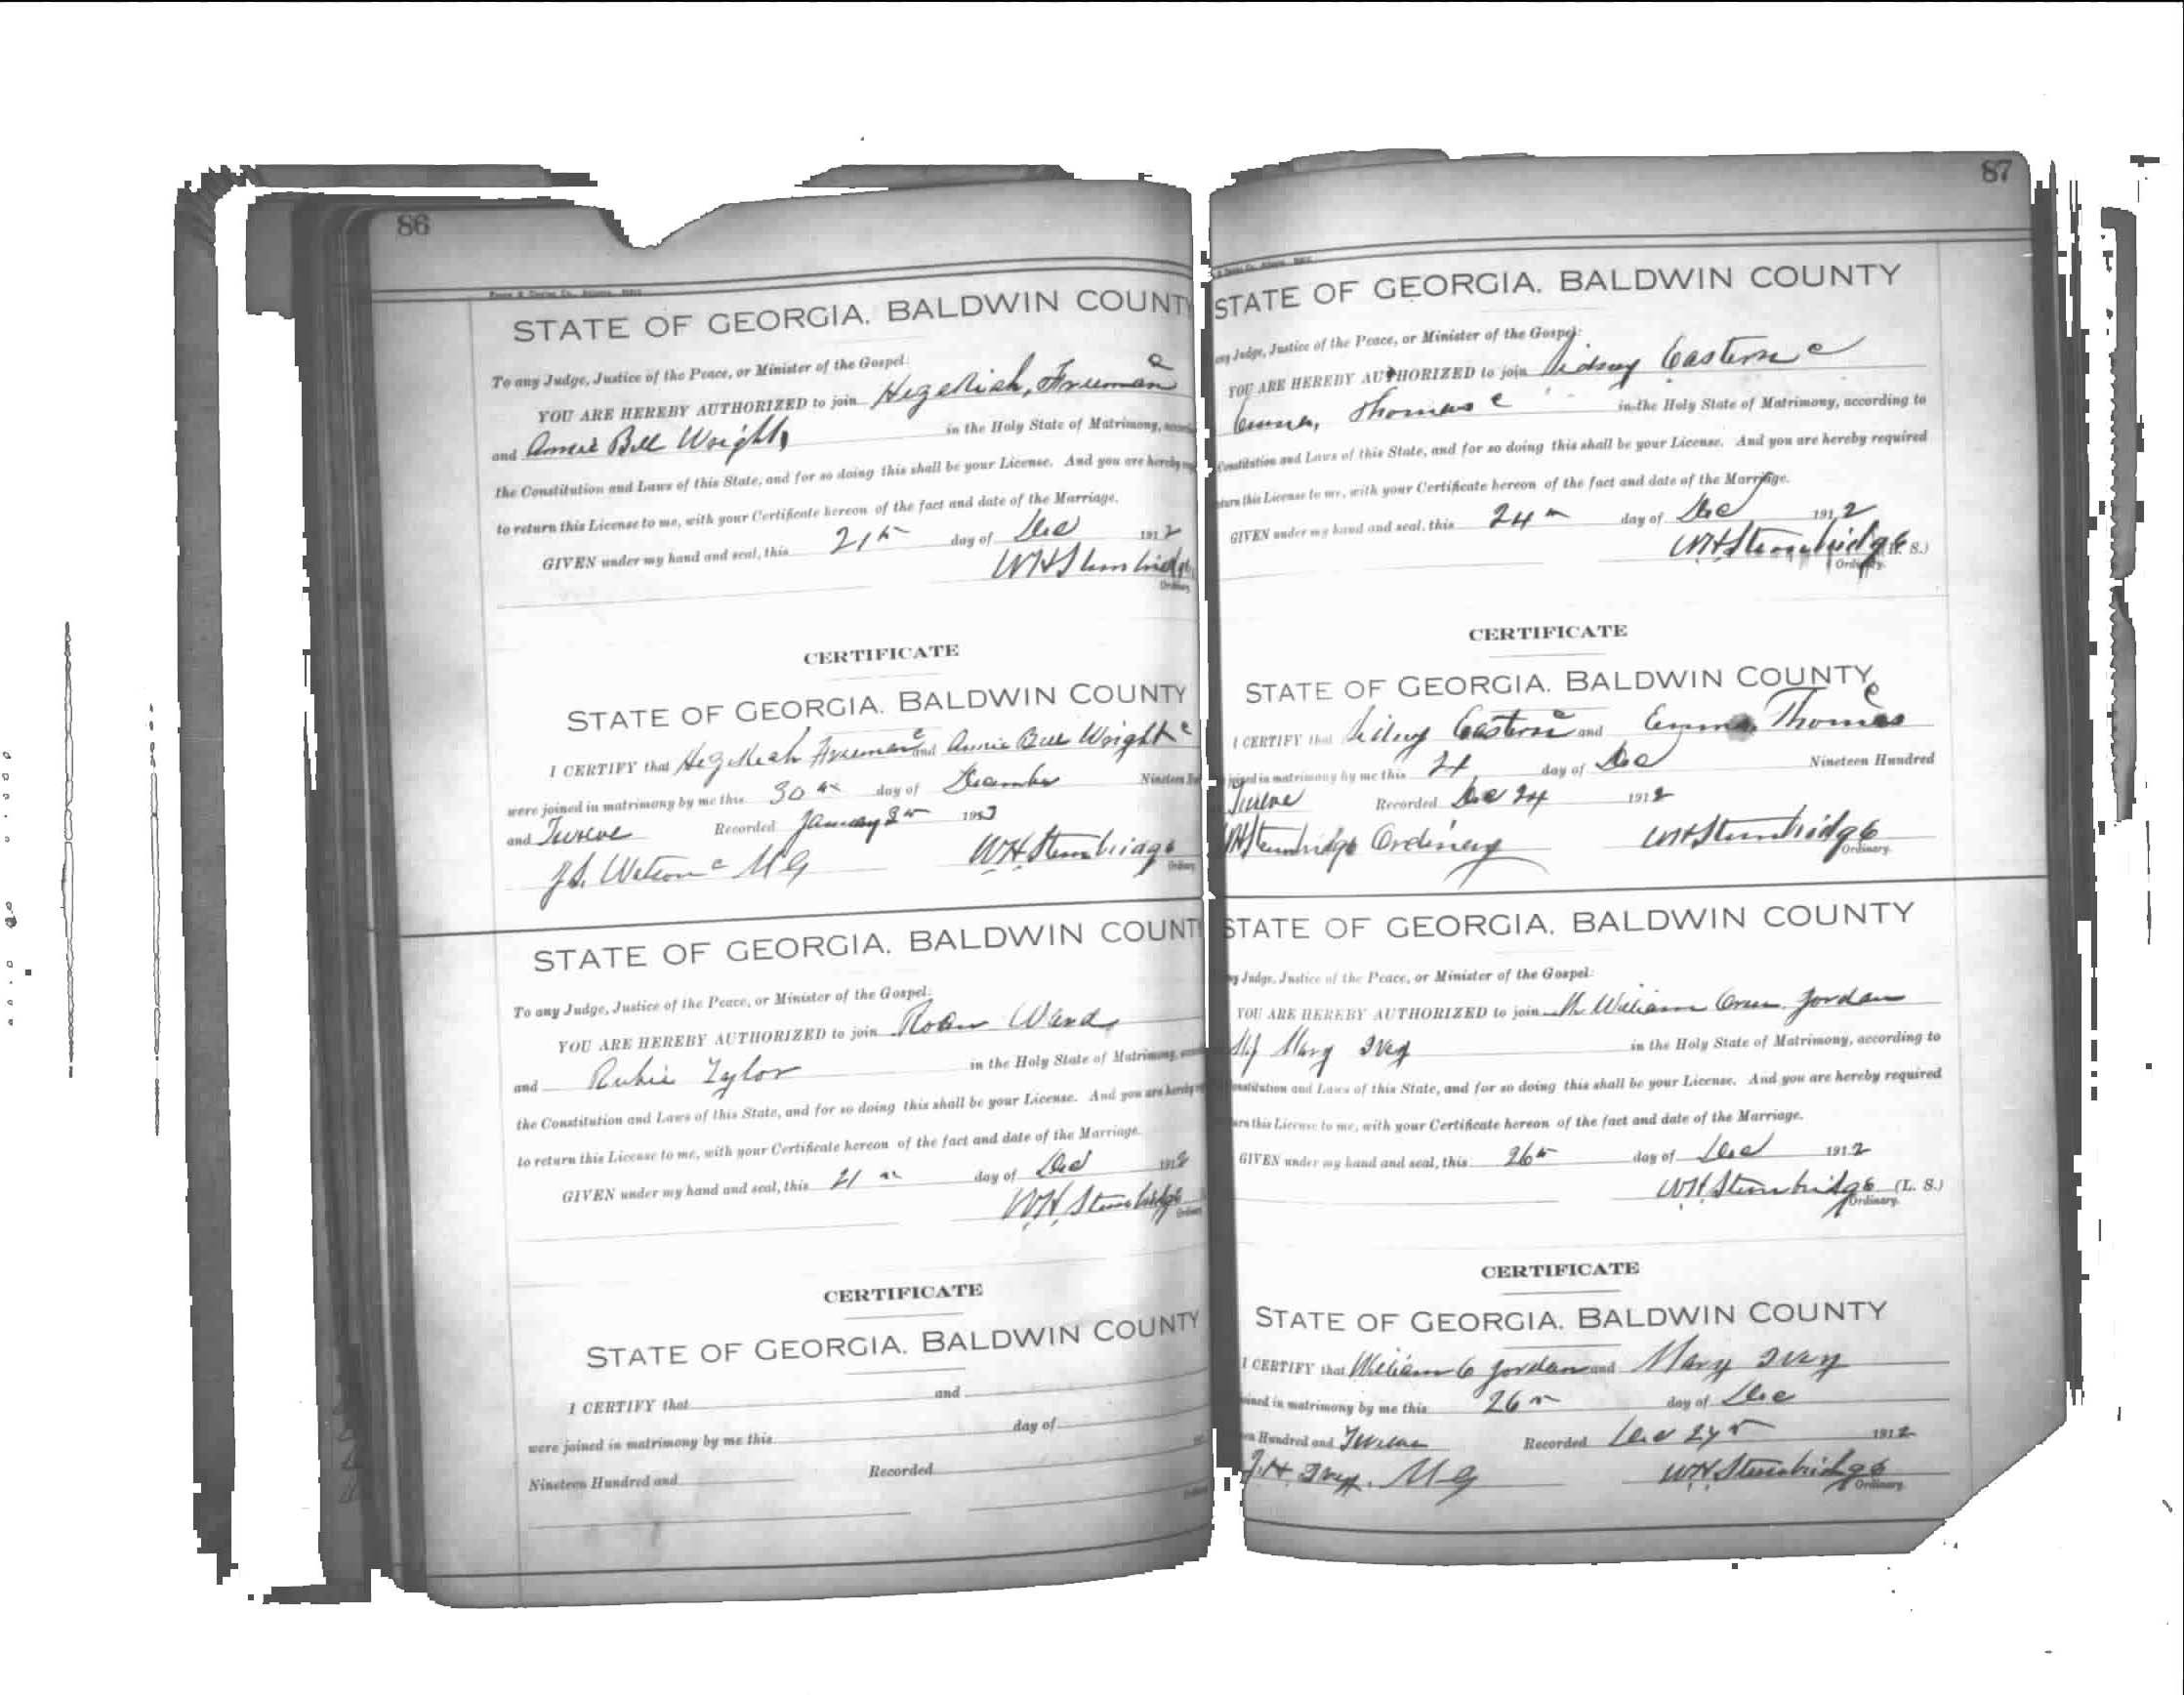 86
STATE OF GEORGIA. BALDWIN COUNTY
To any Judge, Justice of the Peace, or Minister of the Gospel:
c
YOU ARE HEREBY AUTHORIZED to join Hezekiah, Freeman
and Annie Bell Wright, in the Holy State of Matrimony,
the Constitution and Laws of this State, and for so doing this shall be your License. And you are hereby
to return this License to me, with your Certificate hereon of the fact and date of the Marriage.
GIVEN under my hand and seal, this 21 day of Dec 1912
WH Stembridge
Ordinary
CERTIFICATE
STATE OF GEORGIA. BALDWIN COUNTY
I CERTIFY that Hezekiah Freeman c and Annie Bell Wright c
were joined in matrimony by me this 30 day of December Nineteen
and Twelve Recorded January 1913
J.S. Watson c M G WH Stembridge
Ordinary
STATE OF GEORGIA. BALDWIN COUNT
To any Judge, Justice of the Peace, or Minister of the Gospel:
YOU ARE HEREBY AUTHORIZED to join Ward,
and Rubie Tylor in the Holy State of Matrimony,
the Constitution and Laws of this State, and for so doing this shall be your License. And you are hereby
to return this License to me, with your Certificate hereon of the fact and date of the Marriage.
GIVEN under my hand and seal, this 21 day of Dec 1912
W.H. Stembridge
Ordinary
CERTIFICATE
STATE OF GEORGIA. BALDWIN COUNTY
I CERTIFY that and
were joined in matrimony by me this day of
Nineteen Hundred and Recorded
87
STATE OF GEORGIA. BALDWIN COUNTY
any Judge, Justice of the Peace, or Minister of the Gospel:
YOU ARE HEREBY AUTHORIZED to join Eastern c
Emma, Thomas c in the Holy State of Matrimony, according to
Constitution and Laws of this State, and for so doing this shall be your License. And you are hereby required
this License to me, with your Certificate hereon of the fact and date of the Marriage.
GIVEN under my hand and seal, this 24 day of Dec 1912
WH Stembridge (L. S.)
Ordinary.
CERTIFICATE
STATE OF GEORGIA. BALDWIN COUNTY
c
I CERTIFY that Eastern c and Emma Thomas
joined in matrimony by me this 24 day of Dec Nineteen Hundred
Twelve Recorded Dec 24 1912
WH Stembridge Ordinary WH Stembridge
Ordinary.
STATE OF GEORGIA. BALDWIN COUNTY
Judge, Justice of the Peace, or Minister of the Gospel:
YOU ARE HEREBY AUTHORIZED to join William Jordan
Mary Ivey in the Holy State of Matrimony, according to
Constitution and Laws of this State, and for so doing this shall be your License. And you are hereby required
this License to me, with your Certificate hereon of the fact and date of the Marriage.
GIVEN under my hand and seal, this 26 day of Dec 1912
WH Stembridge (L. S.)
Ordinary.
CERTIFICATE
STATE OF GEORGIA. BALDWIN COUNTY
I CERTIFY that William C Jordan and Mary Ivey
joined in matrimony by me this 26 day of Dec
Hundred and Twelve Recorded Dec 27 1912
J.H. Ivey. M G W.H. Stembridge
Ordinary.